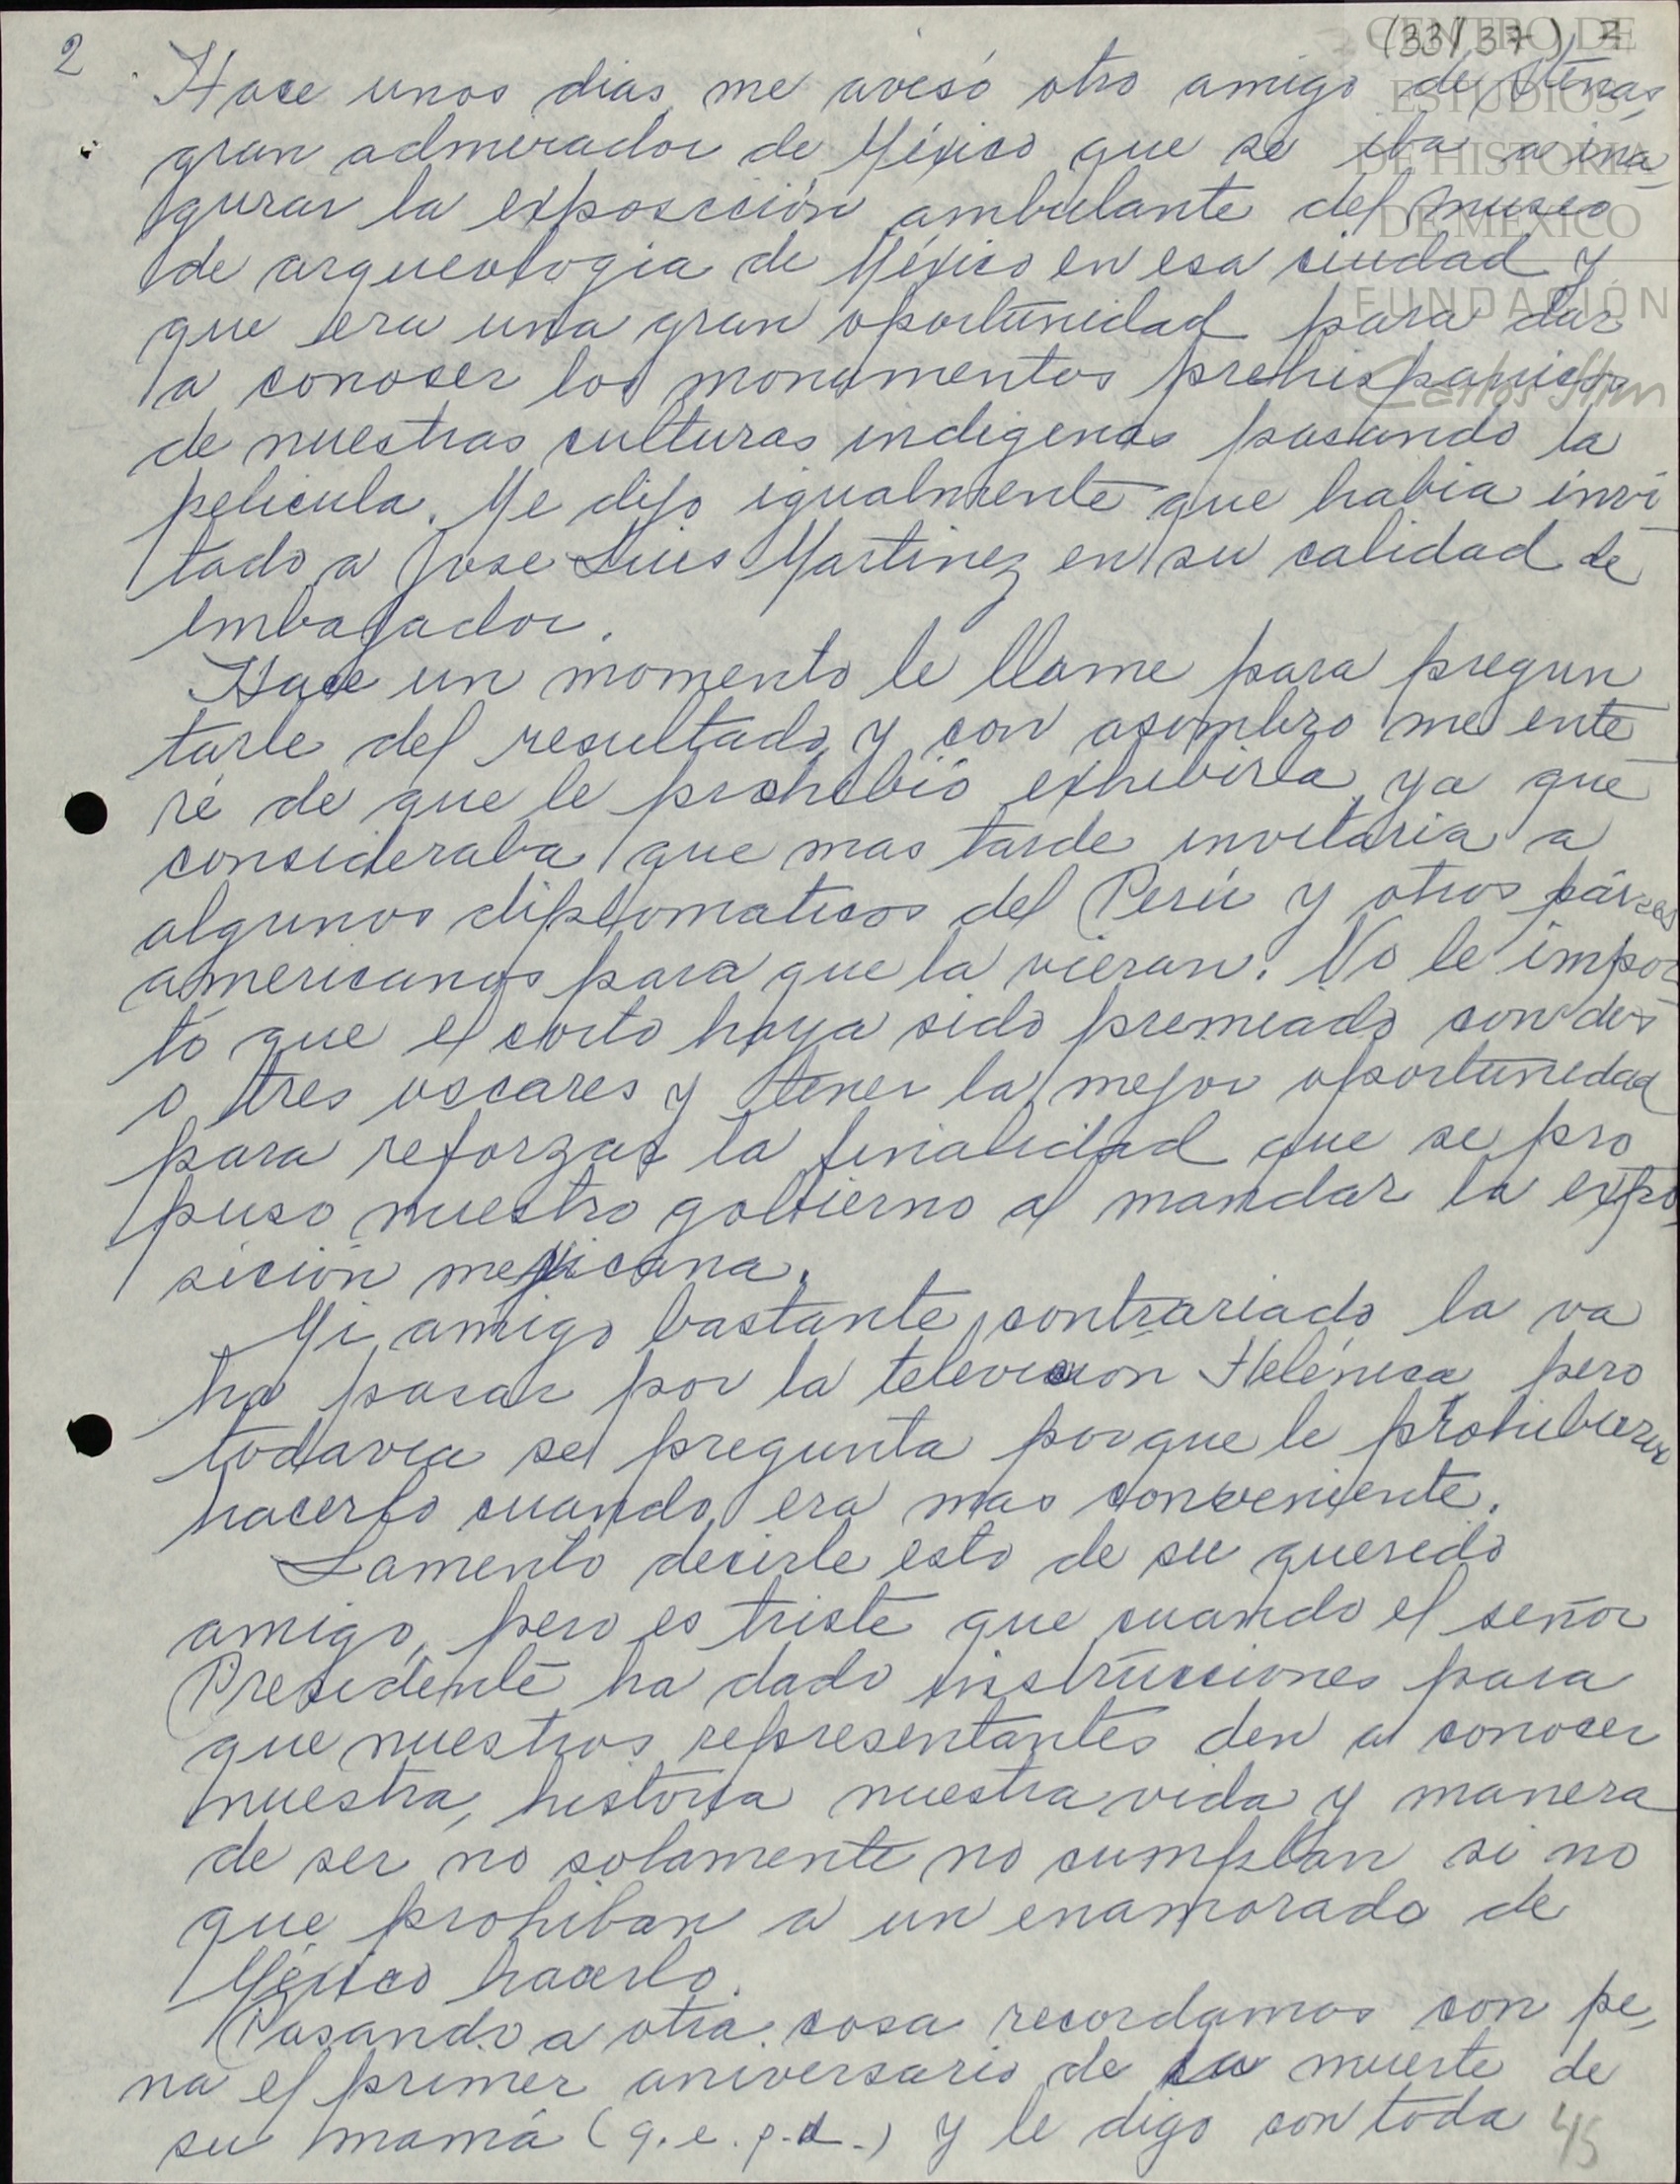 2
(33/37) 2
CENTRO DE
ESTUDIOS
DE HISTORIA
DE MÉXICO
FUNDACIÓN
Carlos Slim
Hace unos dias me avisó otro amigo de Atenas,
gran admirador de México que se iba a ina
gurar la exposicción ambulante del museo
de arqueologia de México en esa ciudad y
que era una gran oportunidad para dar
a conocer los monumentos prehispanicos
de nuestras culturas indigenas pasando la
pelicula. Me dijo igualmente que habia invi
tado a Jose Luis Martinez en su calidad de
embajador.
Hace un momento le llame para pregun
tarle del resultado y con asombro me ente
ré de que le prohibió exhibirla ya que
consideraba que mas tarde invitaria a
algunos diplomaticos del Perú y otros paises
americanos para que la vieran. No le impor
tó que el corto haya sido premiado con dos
o tres oscares y tener la mejor oportunidad
para reforzar la finalidad que se pro
puso nuestro gobierno al mandar la expo
sición mexicana.
Mi amigo bastante contrariado la va
ha pasar por la television Helénica pero
todavia se pregunta porque le prohibieron
hacerlo cuando era mas conveniente.
Lamento decirle esto de su querido
amigo, pero es triste que cuando el señor
Presidente ha dado instrucciones para
que nuestros representantes den a conocer
nuestra, historia nuestra vida y manera
de ser no solamente no cumplan si no
que prohiban a un enamorado de
México hacerlo.
Pasando a otra cosa recordamos con pe,
na el primer aniversario de la muerte de
su mamá (q.e.p.d.) y le digo con toda
45